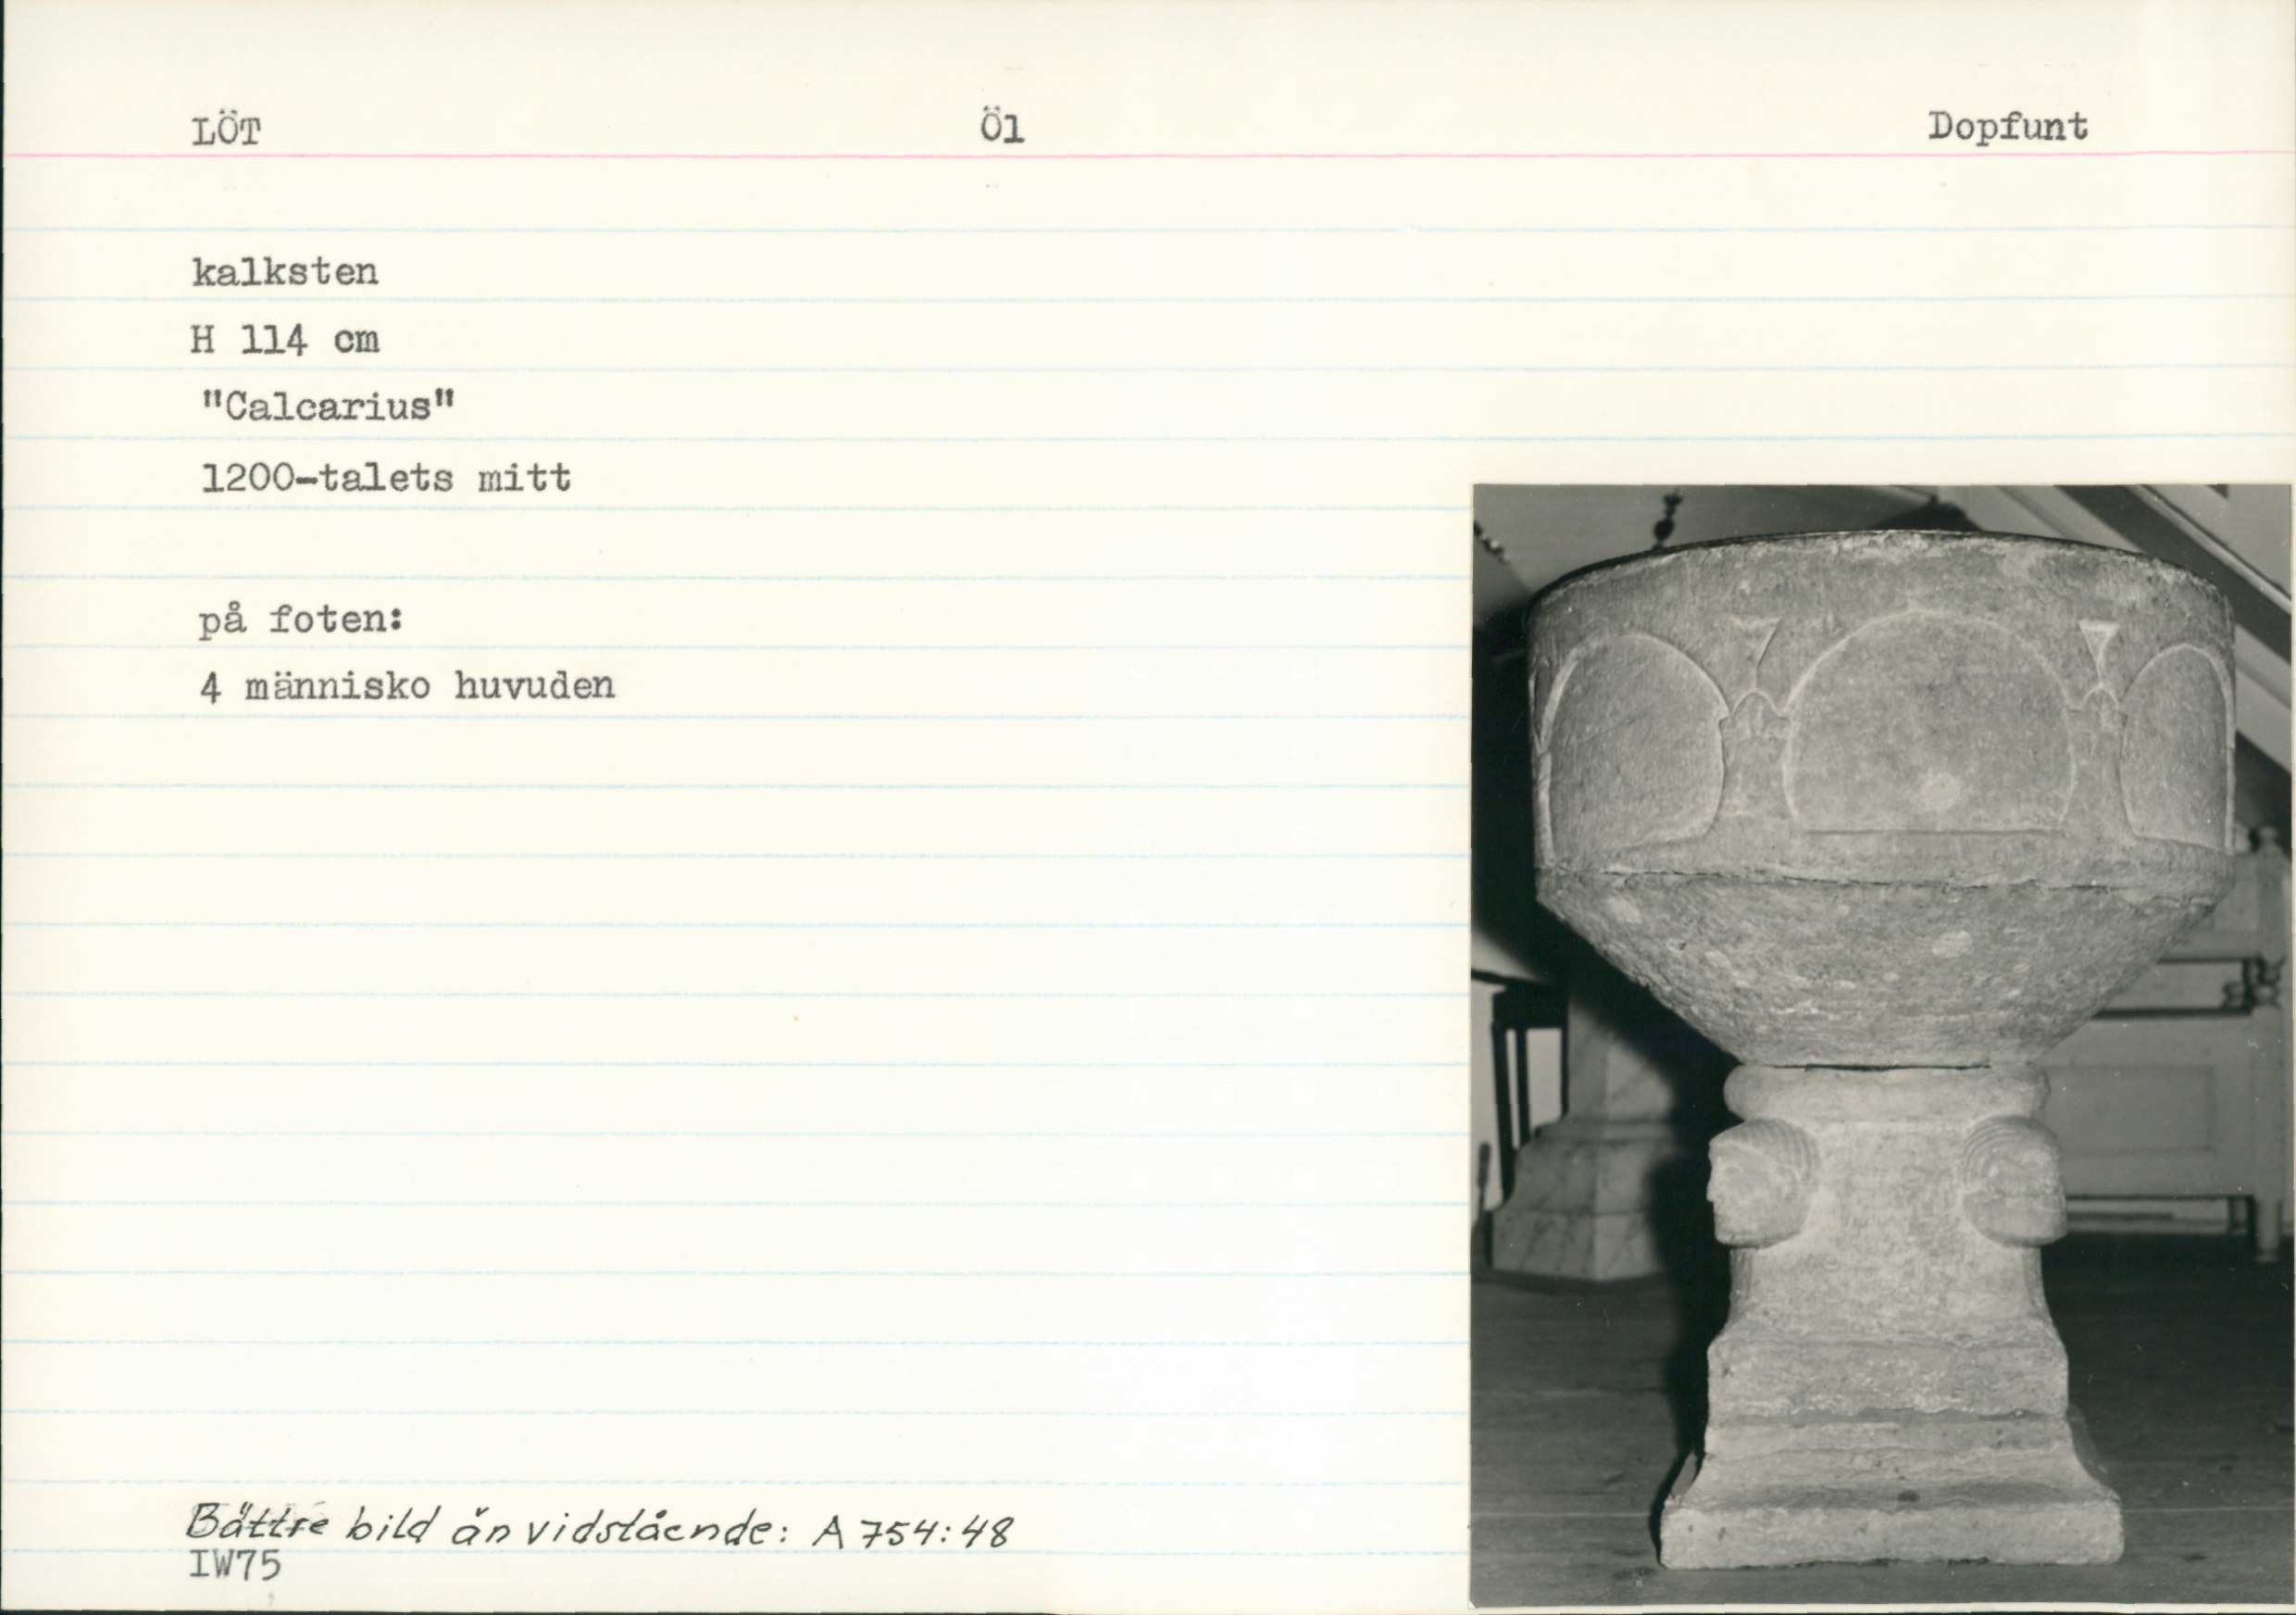 LÖT Öl Dopfunt
kalksten
H 114 cm
"Calcarius"
1200-talets mitt
på foten:
4 människo huvuden
Bättre bild än vidstående: A 754:48
IW75